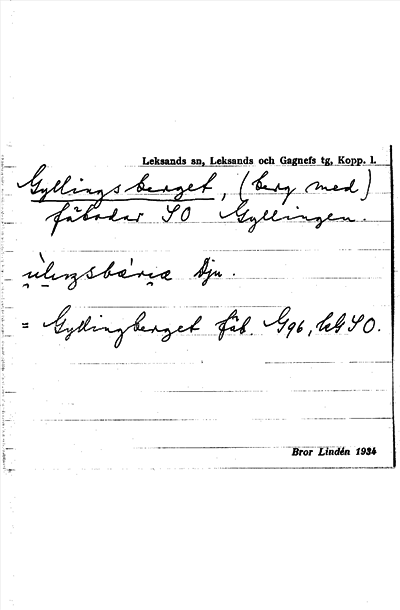 Leksands sn, Leksands och Gagnefs tg, Kopp. l.
Gyllingsberget, (berg med)
fäbodar SO Gyllingen.
Dju.
= Gyllingberget fäb. G96, bl SO.
Bror Lindén 1934